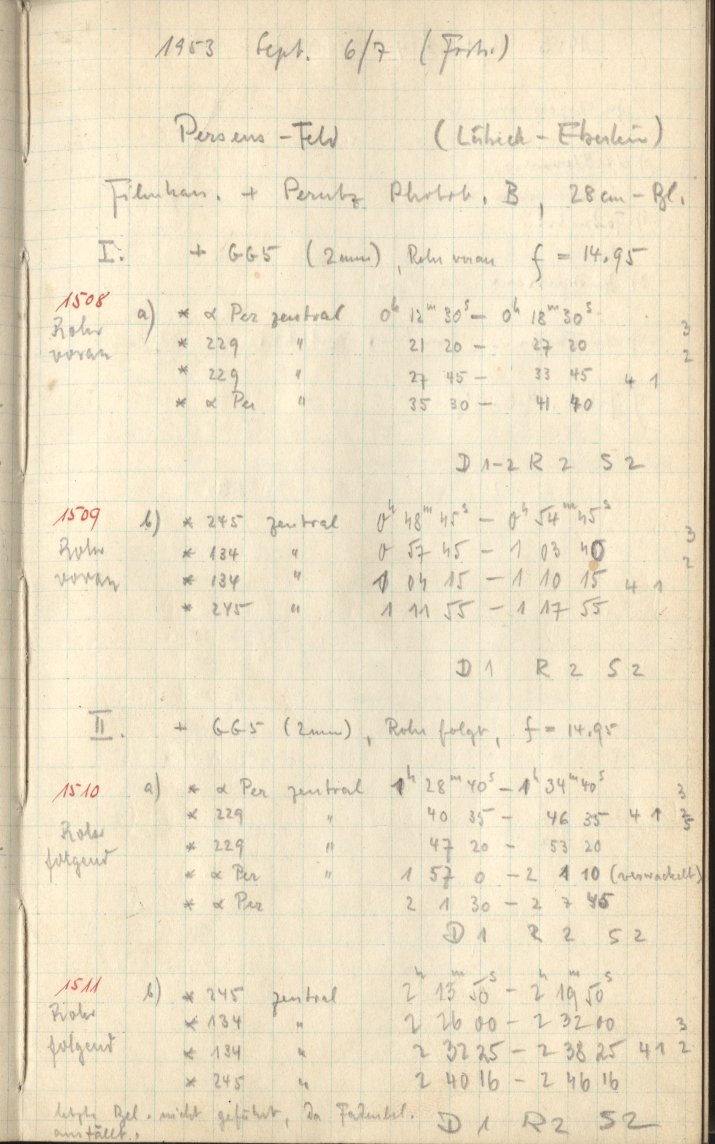 1953 Sept. 6/7 (Forts.)
Perseus-Feld (Lübeck-Eberlein)
Filmkas. + Perutz Photot. B, 28cm-Bl.
I. + GG5 (2mm), Rohr voran f = 14.95
1508 a) * α Per zentral 0h 12m 30s - 0h 18m 30s 3
Rohr * 229 " 21 20 - 27 20 2
voran * 229 " 27 45 - 33 45 4 1
* α Per " 35 30 - 41 40
D 1-2 R 2 S 2
1509 b) * 245 zentral 0h 48m 45s - 0h 54m 45s 3
Rohr * 134 " 0 57 45 - 1 03 40 2
voran * 134 " 1 04 15 - 1 10 15 4 1
* 245 " 1 11 55 - 1 17 55
D 1 R 2 S 2
II. + GG5 (2mm), Rohr folgt, f = 14.95
1510 a) * α Per zentral 1h 28m 40s - 1h 34m 40s 3
* 229 " 40 35 - 46 35 4 1
Rohr * 229 " 47 20 - 53 20
folgend * α Per " 1 57 0 - 2 1 10 (verwackelt)
* α Per 2 1 30 - 2 7 45
D 1 R 2 S 2
1511 b) * 245 zentral 2h 13m 50s - 2h 19m 50s
Rohr * 134 " 2 26 00 - 2 32 00 3
folgend * 134 " 2 32 25 - 2 38 25 4 1 2
* 245 " 2 40 16 - 2 46 16
letzte Bel. nicht geführt, da Fadenbel. D 1 R 2 S 2
ausfällt.